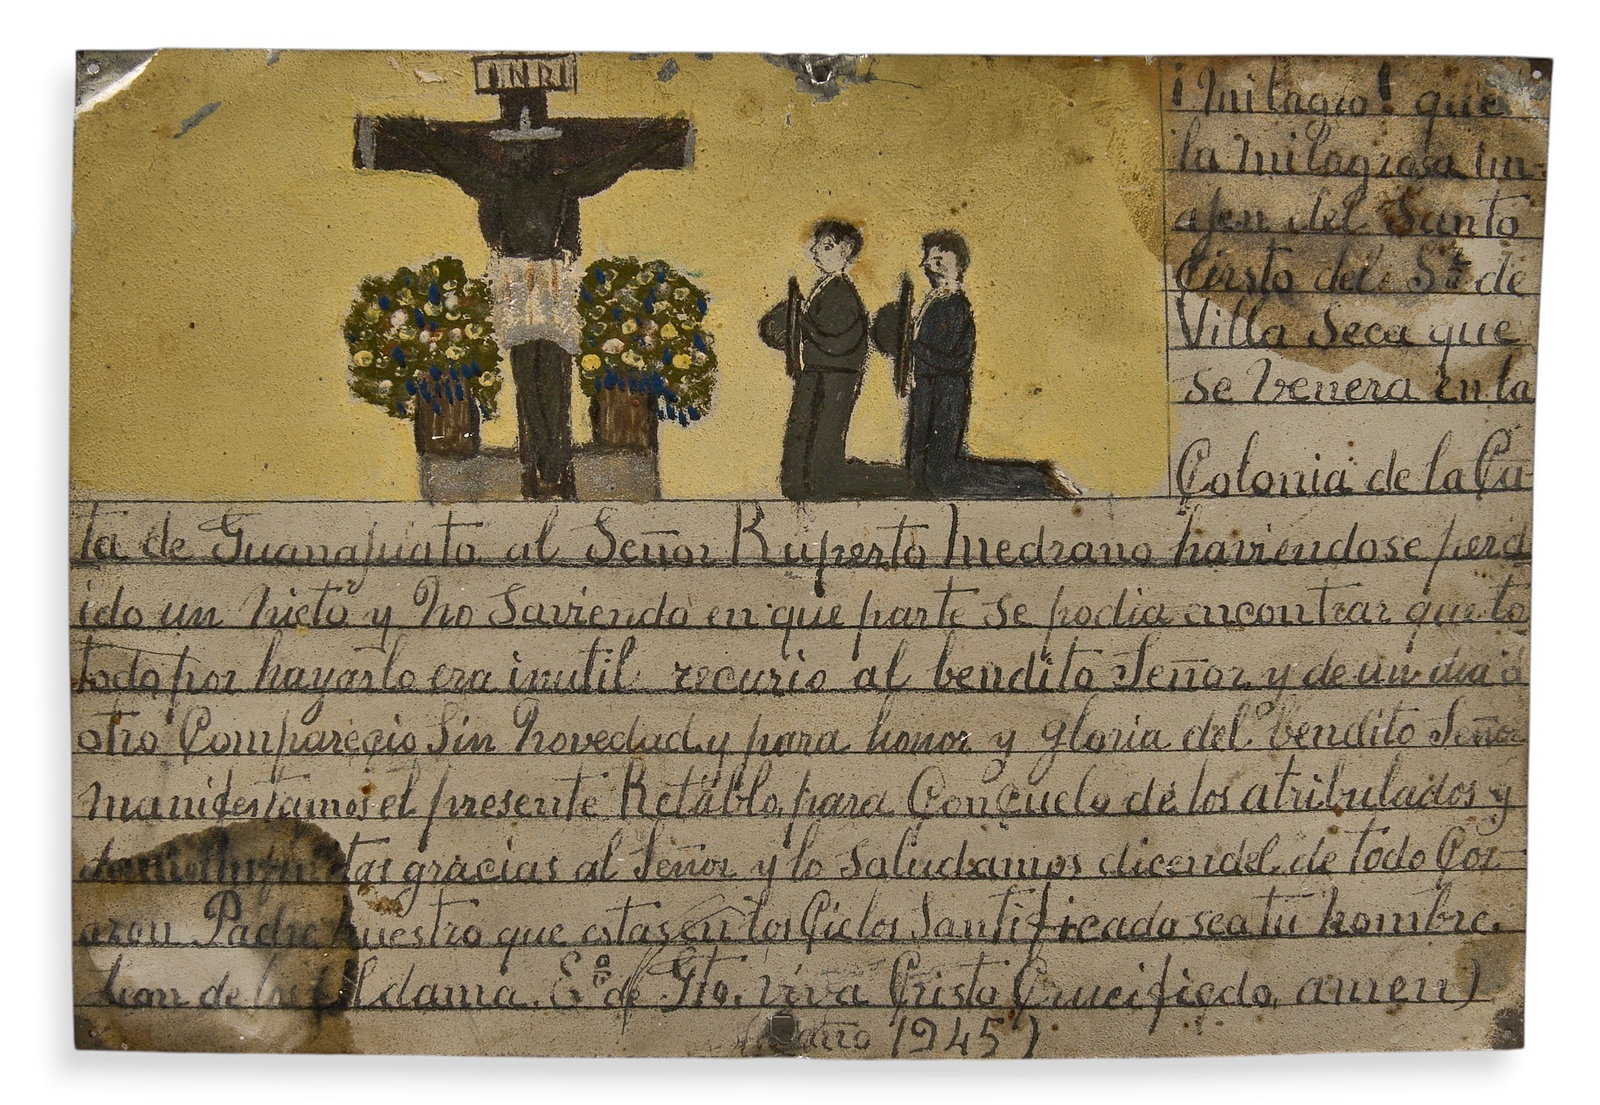 INRI
¡Milagro! que
la milagrosa im-
ajen del Santo
Cirsto del Sr. de
Villa Seca que
se venera en la
Colonia de la Ca-
ta de Guanajuato al Señor Ruperto Medrano haviendose perd
ido un nieto y no saviendo en que parte se podia encontrar que to
todo por hayarlo era inutil recurio al bendito Señor y de un dia á
otro Comparecio sin novedad y para honor y gloria del bendito Señor
manifestamos el presente Retablo para Conçuelo de los atribulados y
gracias al Señor y lo saludamos dicendel de todo Cor-
azon Padre nuestro que estas en los Cielos Santificado sea tu nombre.
leon de los Aldama. Eº de Gto. viva Cristo Crucifiçdo, amen)
año 1945)